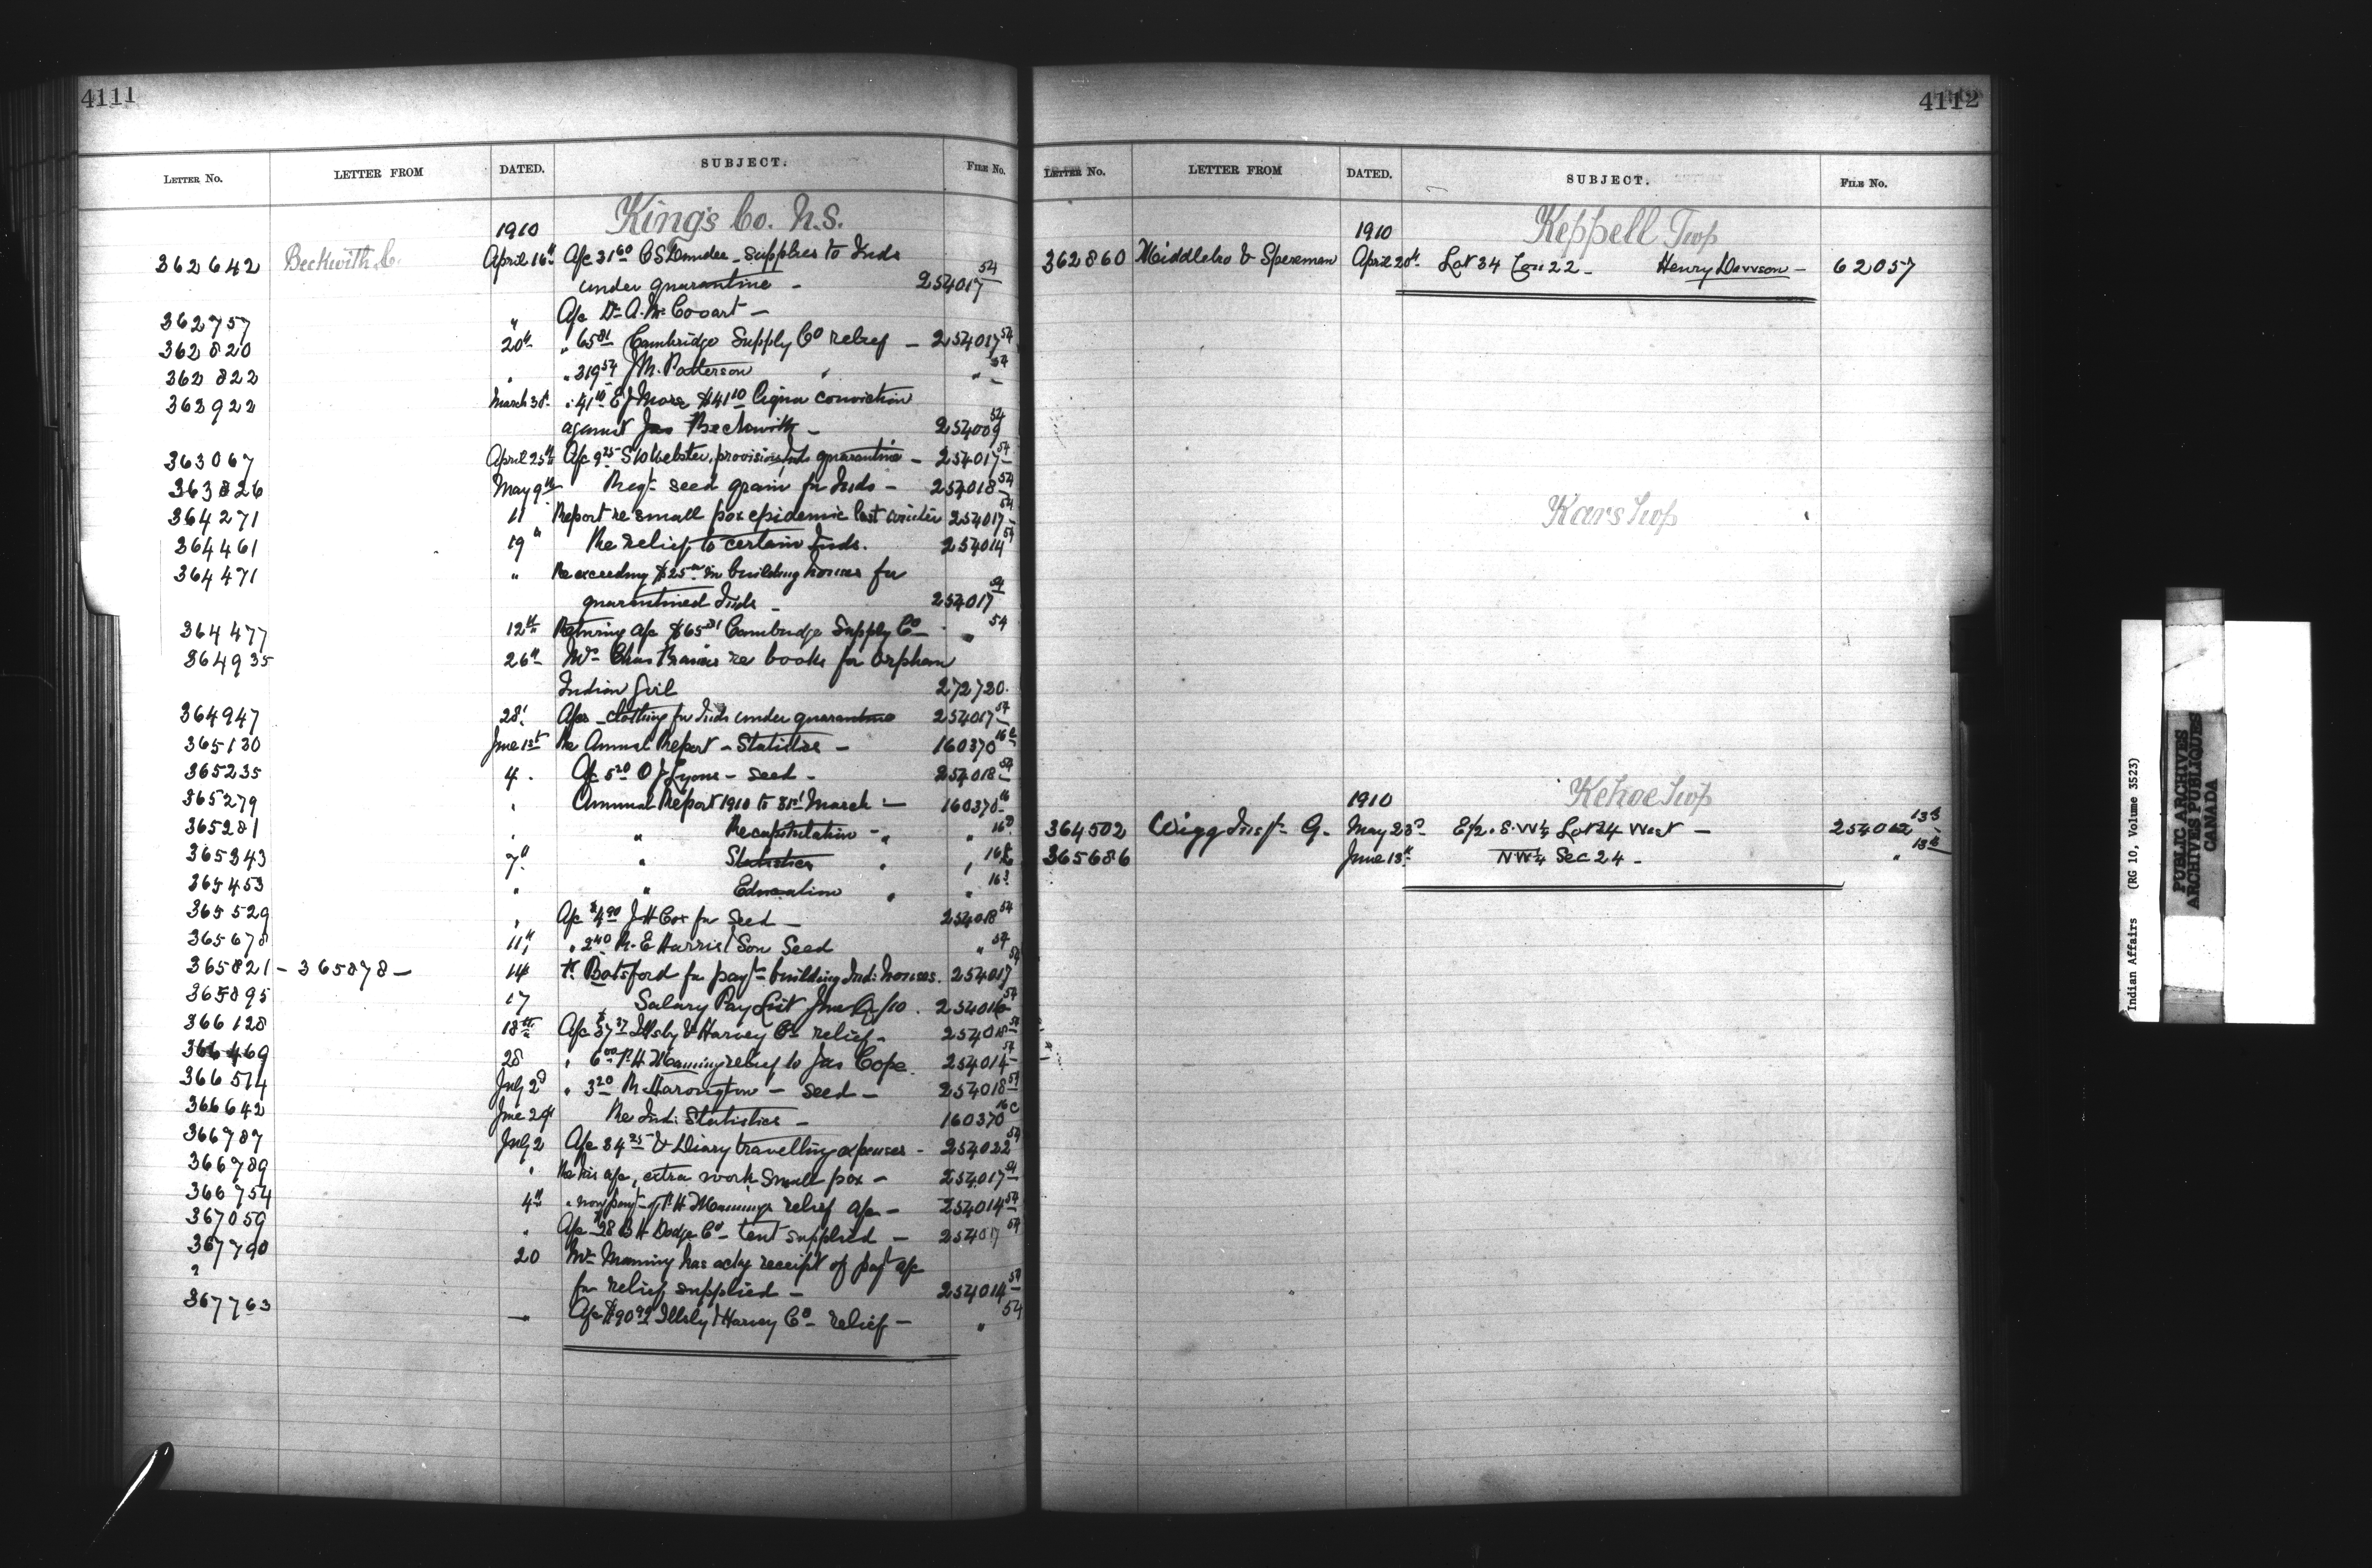 4111
LETTER No. LETTER FROM DATED. SUBJECT. FILE No.
1910 King's Co. N.S.
362642 Beckwith C. April 16th A/c 31 60 C S supplies to Inds
under quarantine - 254017 54
362757 " A/c Dr A. M. Covart -
362820 20th " 65 81 Cambridge Supply Co relief - 254017 54
362822 " " 319 54 J M. Patterson " " 54
362922 March 30 " 41 10 E J Morse $41 10 liquor conviction
against Jas Beckwith - 254009 54
363067 April 25th A/c 9 25 S Webster, provisions Inds quarantine - 254017 54
363826 May 9th Reqt seed grain for Inds - 254018 54
364271 11 Report re small pox epidemic last winter 254017 54
364461 19" Re relief to certain Inds. 254014 54
364471 " Re exceeding $25 00 in building houses for
quarantined Inds - 254017 54
364477 12th Returning a/c $65 81 Cambridge Supply Co - " 54
364935 26th Mrs Chas re books for orphan
Indian Girl 272720.
364947 28 A/cs - clothing for Inds under quarantine 254017 54
365130 June 1st Re Annual Report - Statistics - 160370 16
365235 4. A/c 5 20 O J Lyons - seed - 254018 54
365279 " Annual Report 1910 to 31st March - 160370 16
365281 " " Recapitulation - " " 16
365343 7" " Statistics " " 16
365453 " " Education " " 16
365529 " A/c $4 90 J H Cox for seed - 254018 54
365678 11" " 2 40 R. E Harris & Son Seed " 54
365821 - 365878 - 14 Botsford for payt building Ind: houses. 254017 54
365895 17 Salary Pay List June /10. 254016 54
366128 18th A/c 37 Illsly & Harvey Co relief - 254018 54
366469 28 " 6 00 P. H Manning relief to Jas Cope. 254014 54
366514 July 2d " 3 20 R Harrington - seed - 254018 54
366642 June 29 Re Ind: Statistics - 160370 16c
366787 July 2 A/c 34 25 & Diary travelling expenses - 254022 54
366789 " Re his a/c, extra work small pox - 254017 54
366754 4" " non payt of P. H Mannings relief a/c - 254014 54
367059 " A/c 28 B H Dodge Co - tent supplied - 254017 54
367790 20 Mr Manning has ackg receipt of payt a/c
? for relief supplied - 254014 54
367763 - A/c $90 99 Illsly & Harvey Co - relief - " 54
4112
LETTER No. LETTER FROM DATED. SUBJECT. FILE No.
1910 Keppell Twp
362860 Middlebro & Spereman April 20th Lot 34 Con 22 - Henry Dawson - 62057
Kars Twp
1910 Kehoe Twp
364502 Wigg Inspr G. May 23d E/2. S.W¼ Lot 24 West - 254062 13
365686 June 13th NW¼ Sec 24 - " 13
Indian Affairs (RG 10, Volume 3523)
PUBLIC ARCHIVES
ARCHIVES PUBLIQUES
CANADA